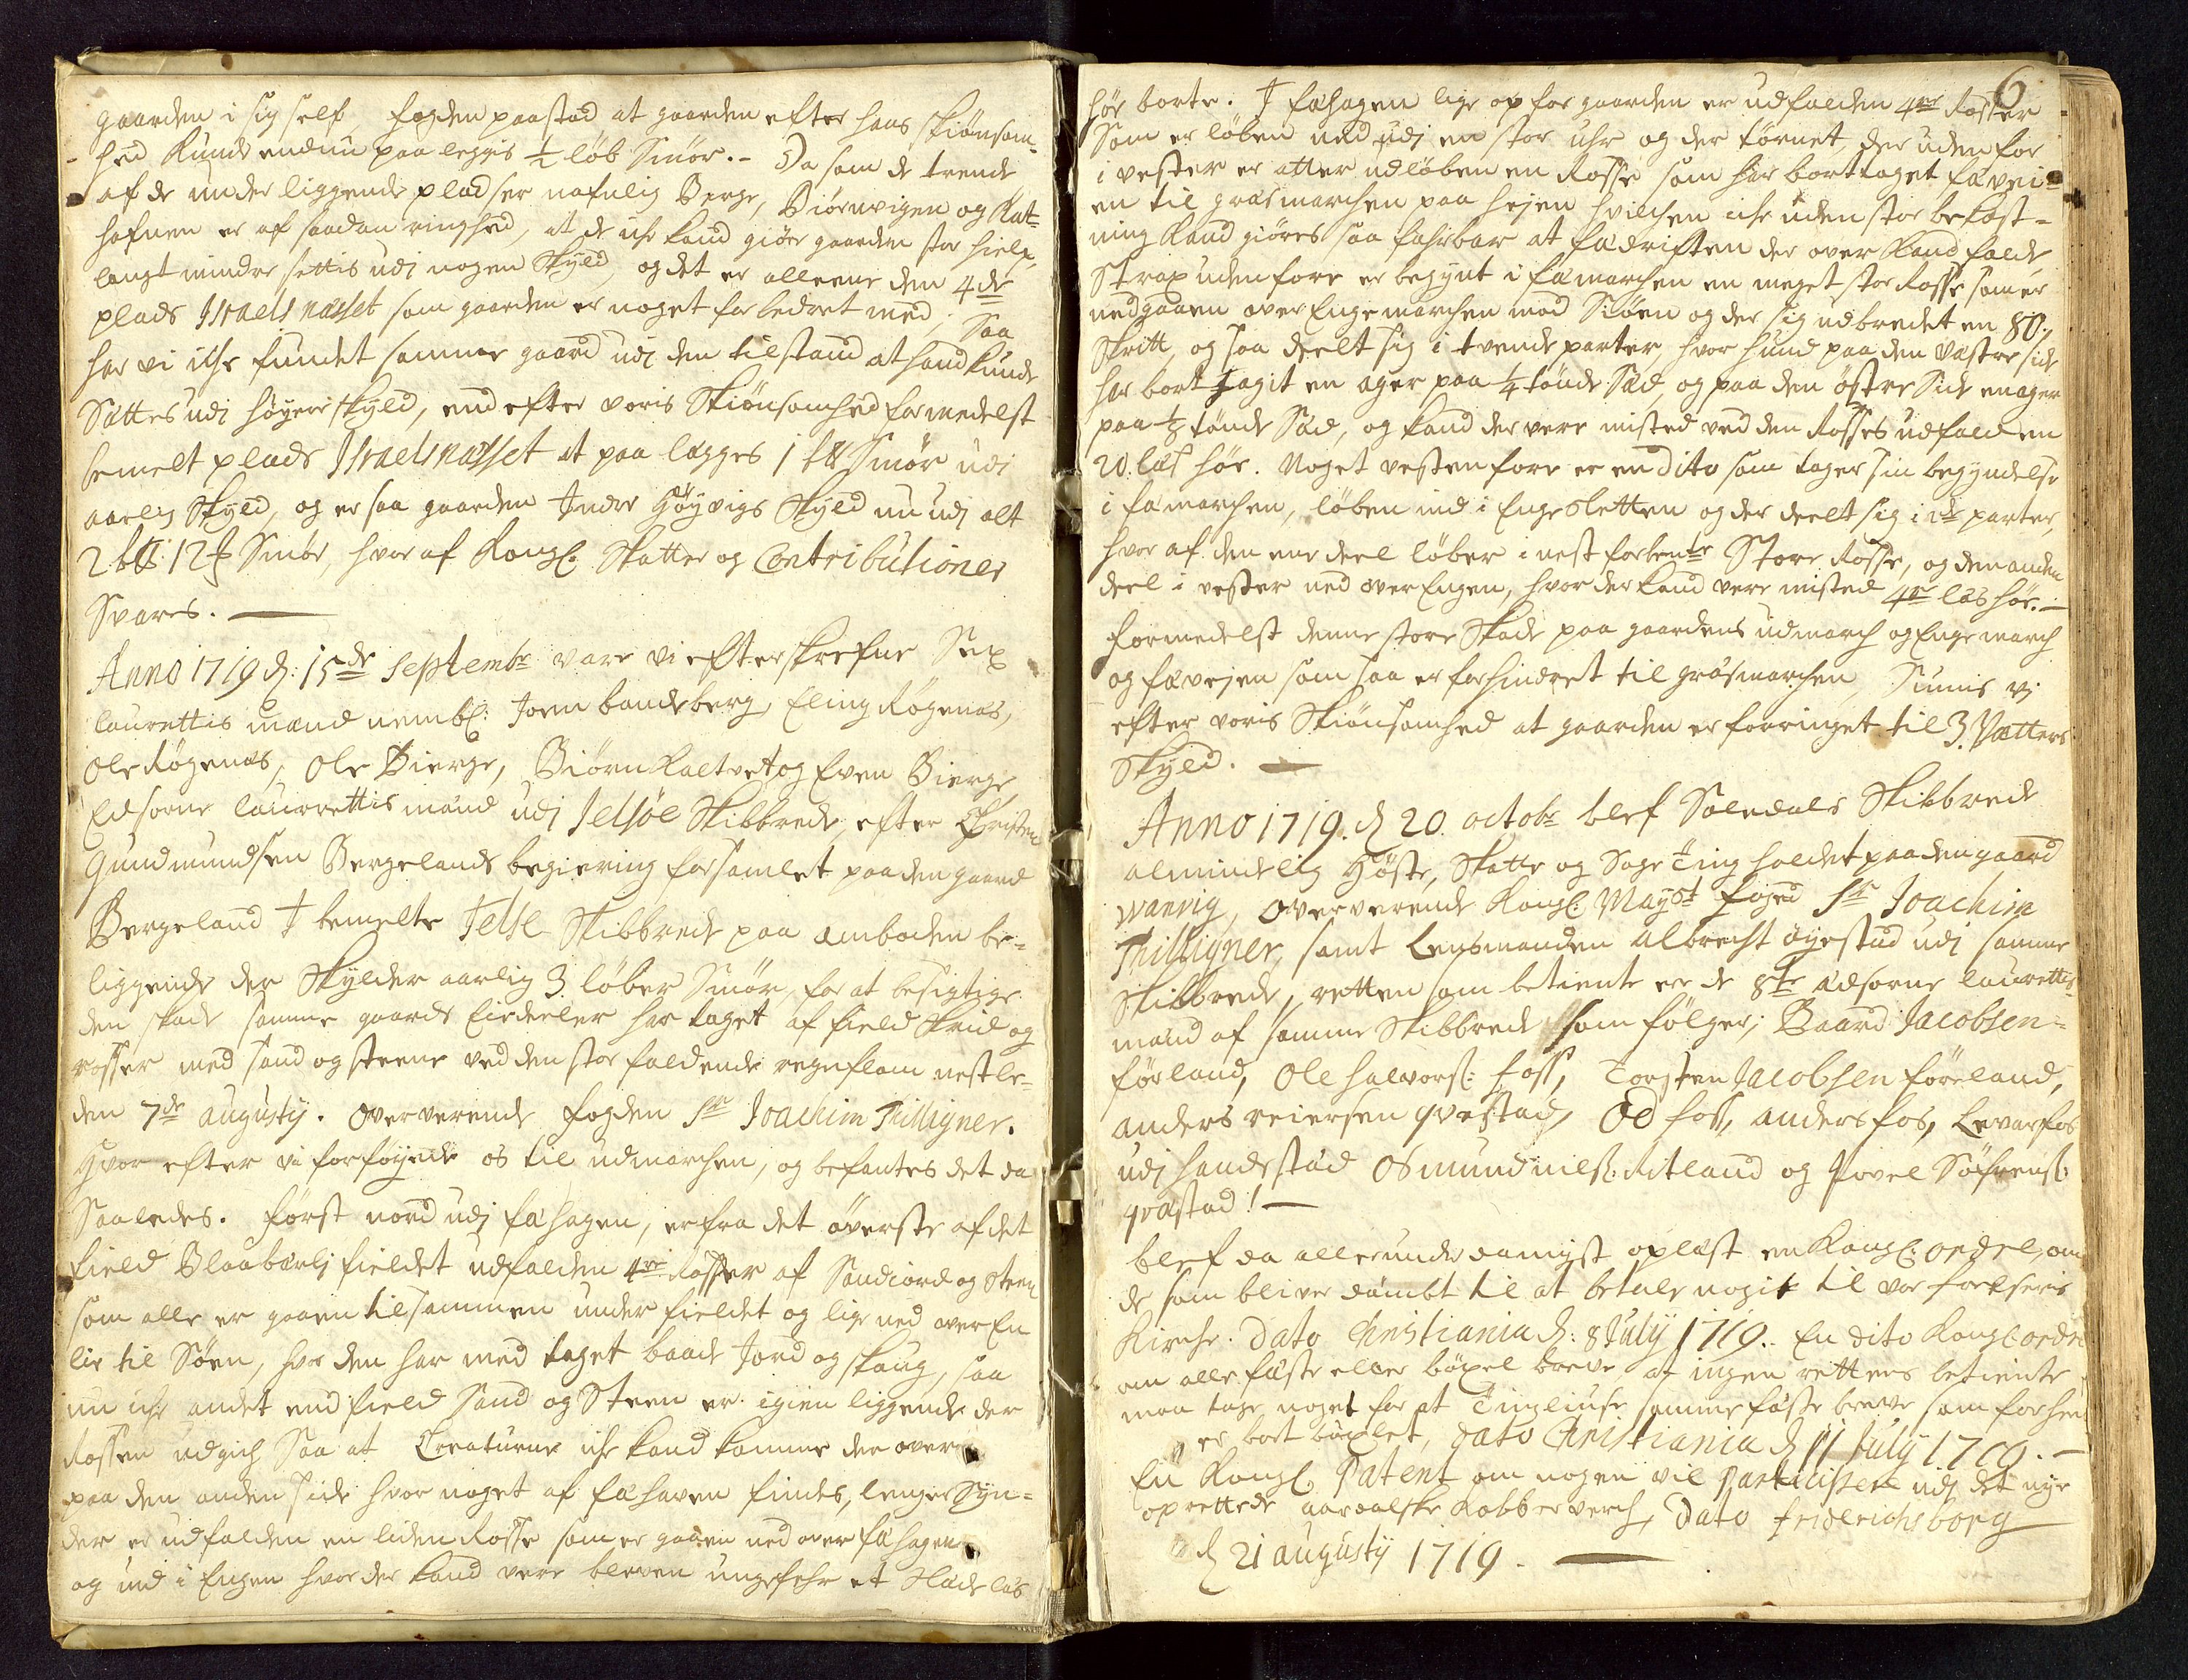 gaarden i sig self, fogden paastod at gaarden efter hans skiønsom-
hed kunde endnu paa leggis ½ løb Smør. - Da som de trende
af de under liggende pladser nafnlig Berge, Biørnvigen og Kat-
hafnen er af saadan ringhed, at de iche kand giøre gaarden stor hielp,
langt mindre settis udj nogen Skyld, og det er alleene den 4de
plads Israelsnæsset som gaarden er noget forbedret med, Saa
har vi iche fundet samme gaard udj den tilstand at hand kunde
Sættes udj høyere skyld, end efter voris Skiønsomhed formedelst
bemelt plads Israelsnæsset at paa lægges 1 Smør udj
aarlig Skyld, og er saa gaarden Indre Høyvigs Skyld nu udj alt
2 12 Smør, hvor af Kongl. Skatter og Contributioner
Svares. —
Anno 1719 d: 15de Septembr vare vi efterskrefne Sex
laurettis mænd nembl: Joen bandeberg, Eling Røgenæs,
Ole Røgenæs, Ole Bierge, Biørn Kaltvet og Even Bierge,
Edsorne laurrettis mænd udj Jelsøe Skibbrede, efter Christen
Gundmundsen Bergelands begiering forsamlet paa den gaard
Bergeland I bemelte Jelse Skibbrede paa amboden be-
liggende der Skylder aarlig 3 løber Smør, for at besigtige
den skade samme gaards Eiedeeler har taget af field Skrid og
rosser med sand og steene ved den stor faldende regnflom nestle-
den 7de augustij. Oververende fogden Sr Joachim Thilligner.
Hvor efter vi forføyede os til udmarchen, og befantes det da
Saaledes. Først nord udj fæhagen, er fra det øverste af det
field Blaabærlj fieldet udfalden 4re Rosser af Sandiord og Steen
som alle er gaaen tilsammen under fieldet og lige ned over En
lie til Søen, hvor den har med taget baade Jord og skoug, saa
nu iche andet end field Sand og Steen er igien liggende der
Rossen udgich Saa at Creaturne iche kand komme der over
paa den anden side hvor noget af fæhaven findes, lenger Syn-
der er udfalden en liden Rosse som er gaaen ned over fæhagen
og ind i Engen hvor der kand vere bleven ungefehr et Slæde læs
6
høe borte. I fæhagen lige op for gaarden er udfalden 4re Rosser
Som er løben ned udj en stor uhr og der tørnet, der uden for
i vester er atter udløben en Rosse som har borttaget fævei-
en til græsmarchen paa hejen hvilchen iche uden stor bekost-
ning kand giøres saa farbar at fædriften der over kand falde
Strax udenfore er begynt i fæmarchen en meget stor Rosse som er
nedgaaen over Engemarchen mod Siøen og der sig udbredet en 80
Skritt, og saa deelt sig i tvende parter, hvor hund paa den Væstre side
har borttagit en ager paa ¼ tønde Sæd, og paa den østre Side en ager
paa ⅛ tønde Sæd, og kand der vere misted ved den Rosses udfald en
20. læs høe. Noget vestenfore er en dito som tager sin begyndelse
i fæmarchen, løben ind i Enge Sletten og der deelt sig i parter,
hvor af den ene deel løber i nest forbente Store Rosse, og den anden
deel i vester ned over Engen, hvor der kand vere misted 4re læs høe. —
Formedelst denne store Skade paa gaardens udmarch og Enge march
og fævejen som saa er forhindret til græsmarchen, Siunis vj
efter voris Skiønsomhed at gaarden er forringet til 3. Vætters
Skyld. —
Anno 1719. d 20. octobr blef Søledals Skibbrede
almindelig Høste, Skatte og Sage Ting holdet paa den gaard
Wanvig, Oververende Kongl. Mayst foged Sr Joachim
Thilligner, samt Lensmanden Albrecht øyestad udj samme
Skibbrede, retten som betiente er de 8te Edsorne laurettis-
mænd af samme Skibbrede som følger; Baard Jacobsen-
førland, Ole halvors: foss, Torsten Jacobsen føreland,
anders reiersen qvestad, Od foss, anders fos, Levar fos
udj hands stæd Osmund nils: Ritland og Povel Søfrens:
qvæstad! —
blef da allerunderdanigst oplæst en Kongl. ordre, om
de som bliver dømbt til at betale nogit til vor frelseris
Kirche. Dato Christiania d: 8 July 1719. En dito Kongl ordre
om alle fæste eller bøxel breve, at ingen rettens betiente
maa tage noget for at Tingliuse samme fæste breve som forhen
er bort bøxlet, Dato Christiania d 11 July 1719. —
En Kongl. Patent om nogen vil Participere udj det nye
oprettede aardalske Kobberverch, Dato friderichsborg
d 21 augustij 1719. —